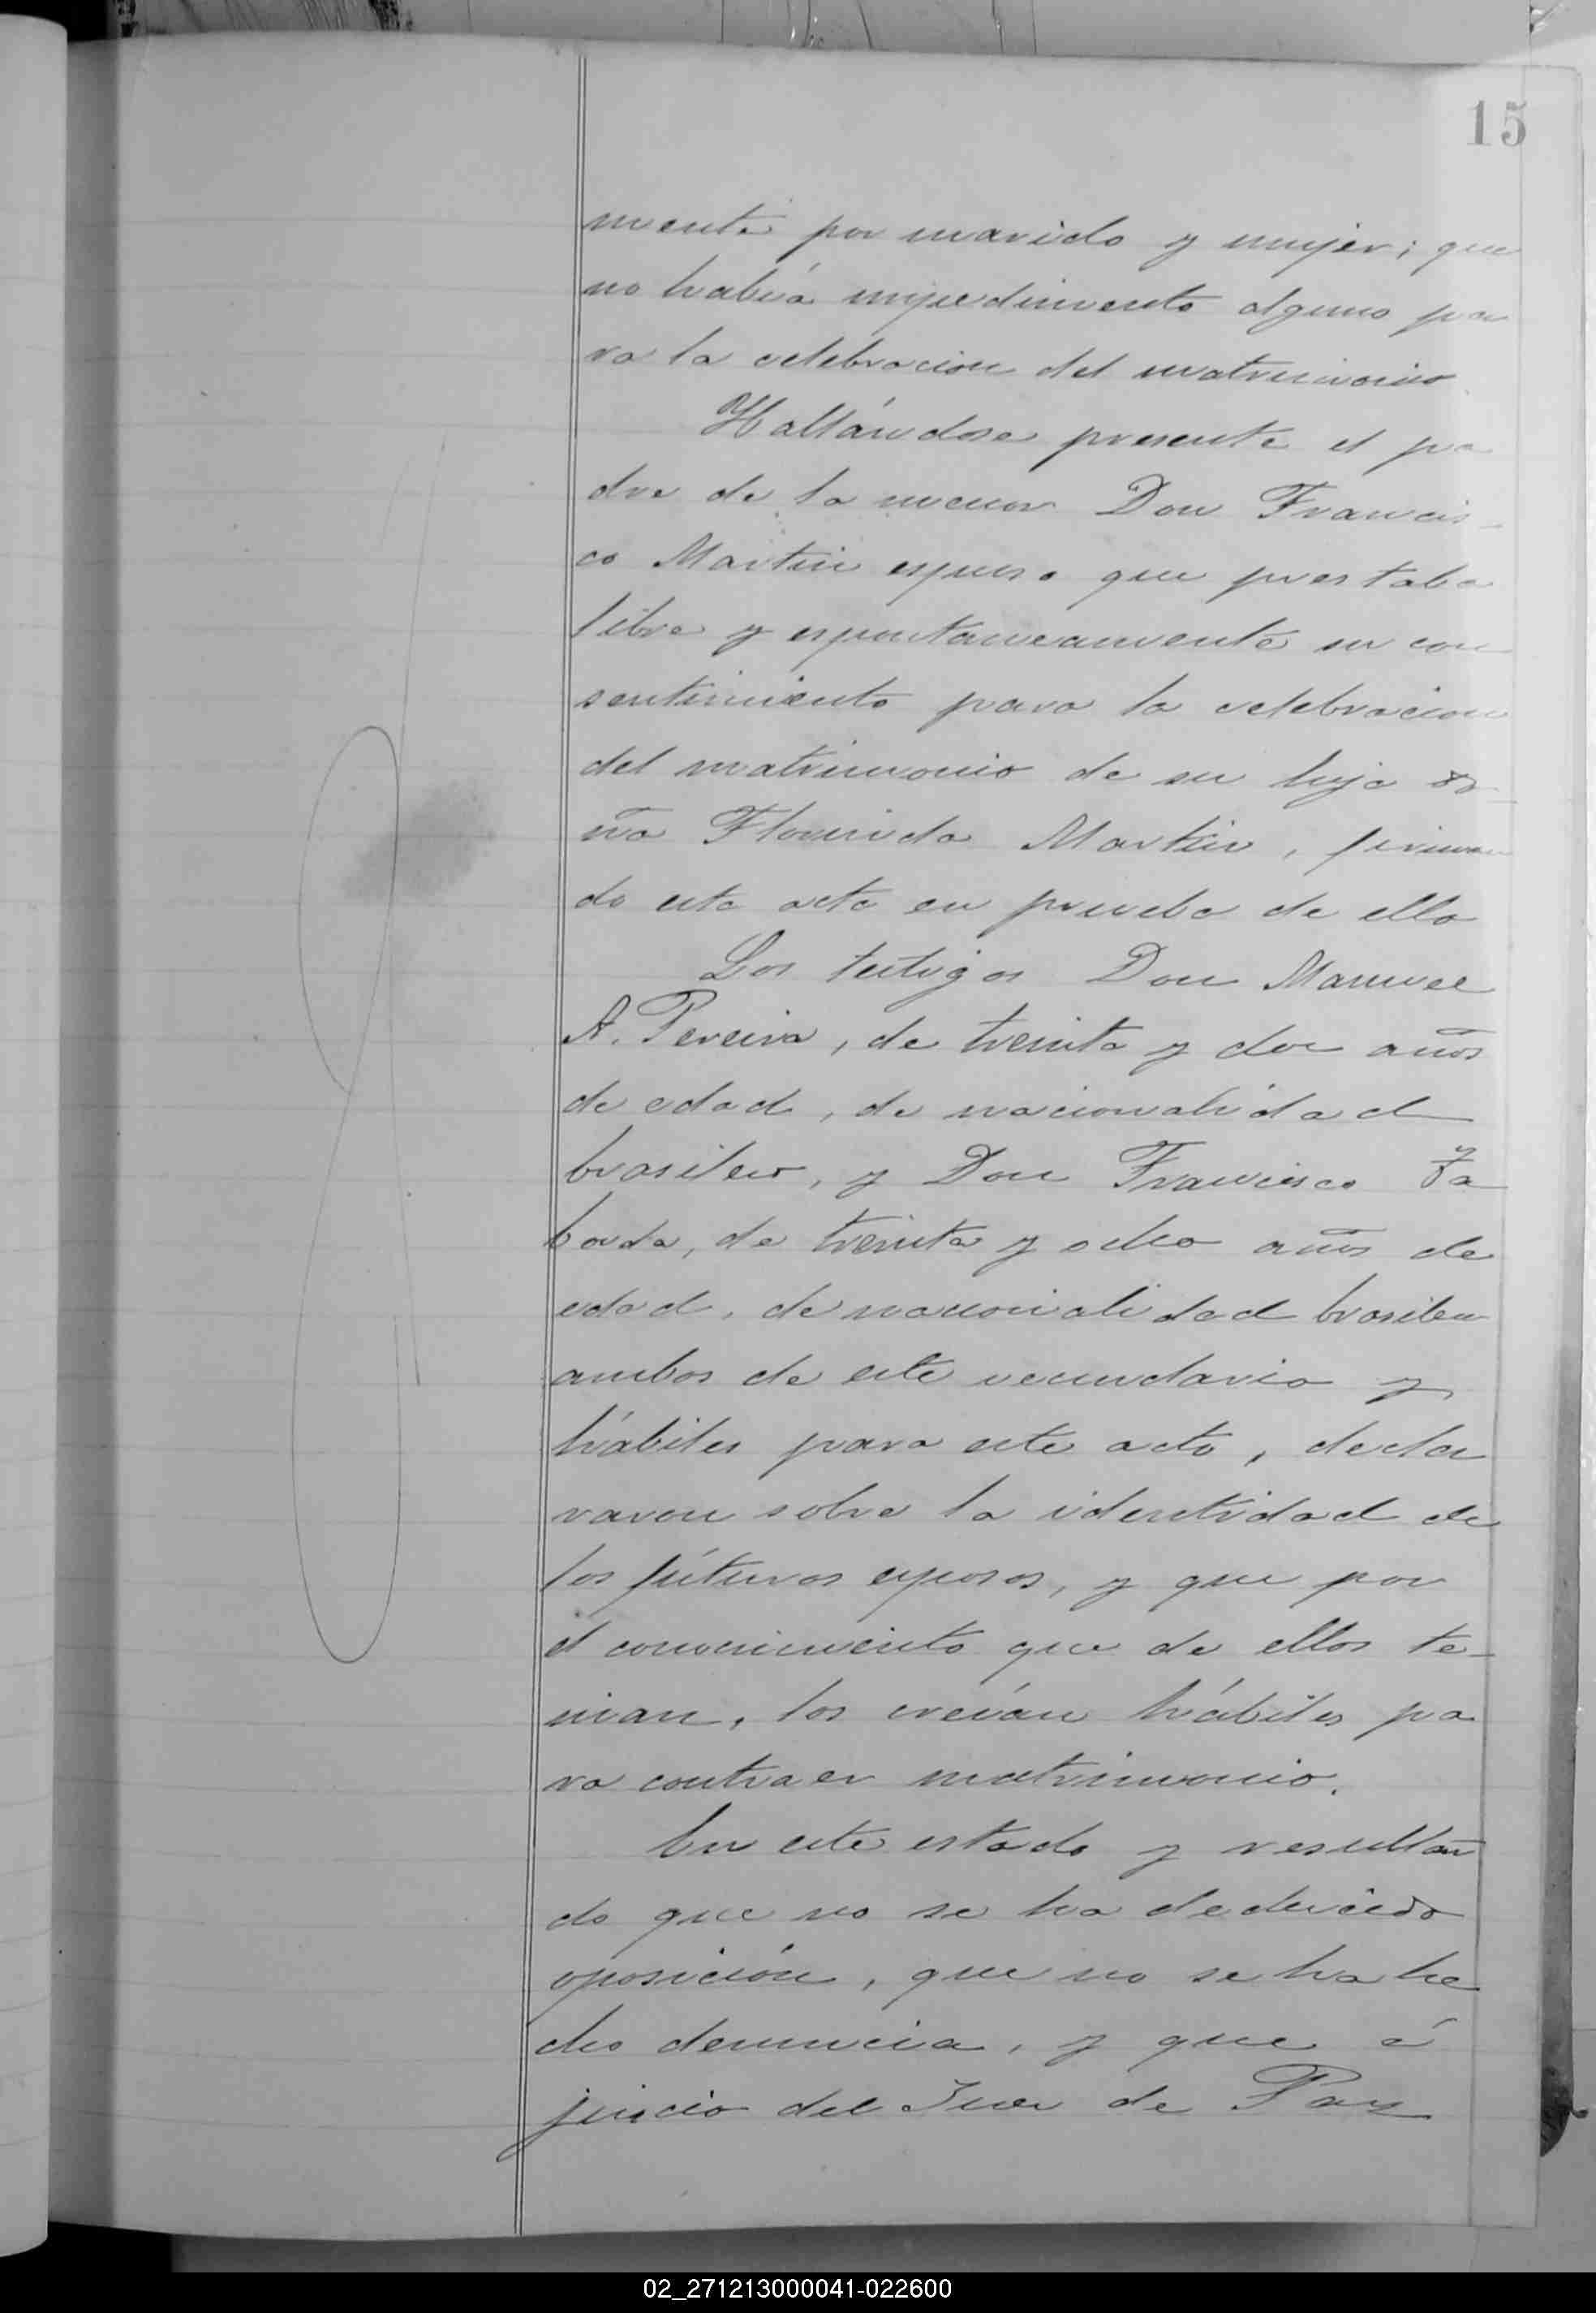 15
mente por marido y mujer; que
no había impedimento alguno pa
ra la celebracion del matrimonio
Hallándose presente el pa
dre de la menor Don Francis-
co Martin espuso que prestaba
libre y espontaneamente su con
sentimiento para la celebracion
del matrimonio de su hija do-
ña Florinda Martin, firman
do esta acta en prueba de ello
Los testigos Don Manuel
A. Pereira, de treinta y dos años
de edad, de nacionalidad
brasilero, y Don Francisco Ta
borda, de treinta y ocho años de
edad, de nacionalidad brasilera
ambos de este vecindario y
hábiles para este acto, decla
raron sobre la identidad de
los fúturos esposos, y que por
el conocimiento que de ellos te-
nian, los creían hábiles pa
ra contraer matrimonio.
En este estado y resultan
do que no se ha deducido
oposición, que no se ha he
cho denuncia, y que á
juicio del Juez de Paz
02_271213000041-022600